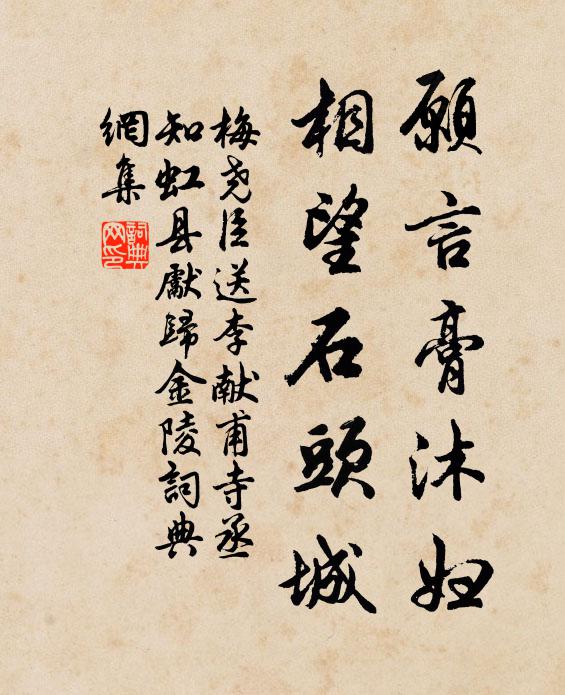 願言膏沐妇
相望石頭城
梅尧臣送李献甫寺丞
知虹县獻歸金陵詞典
網集
詞典
网印